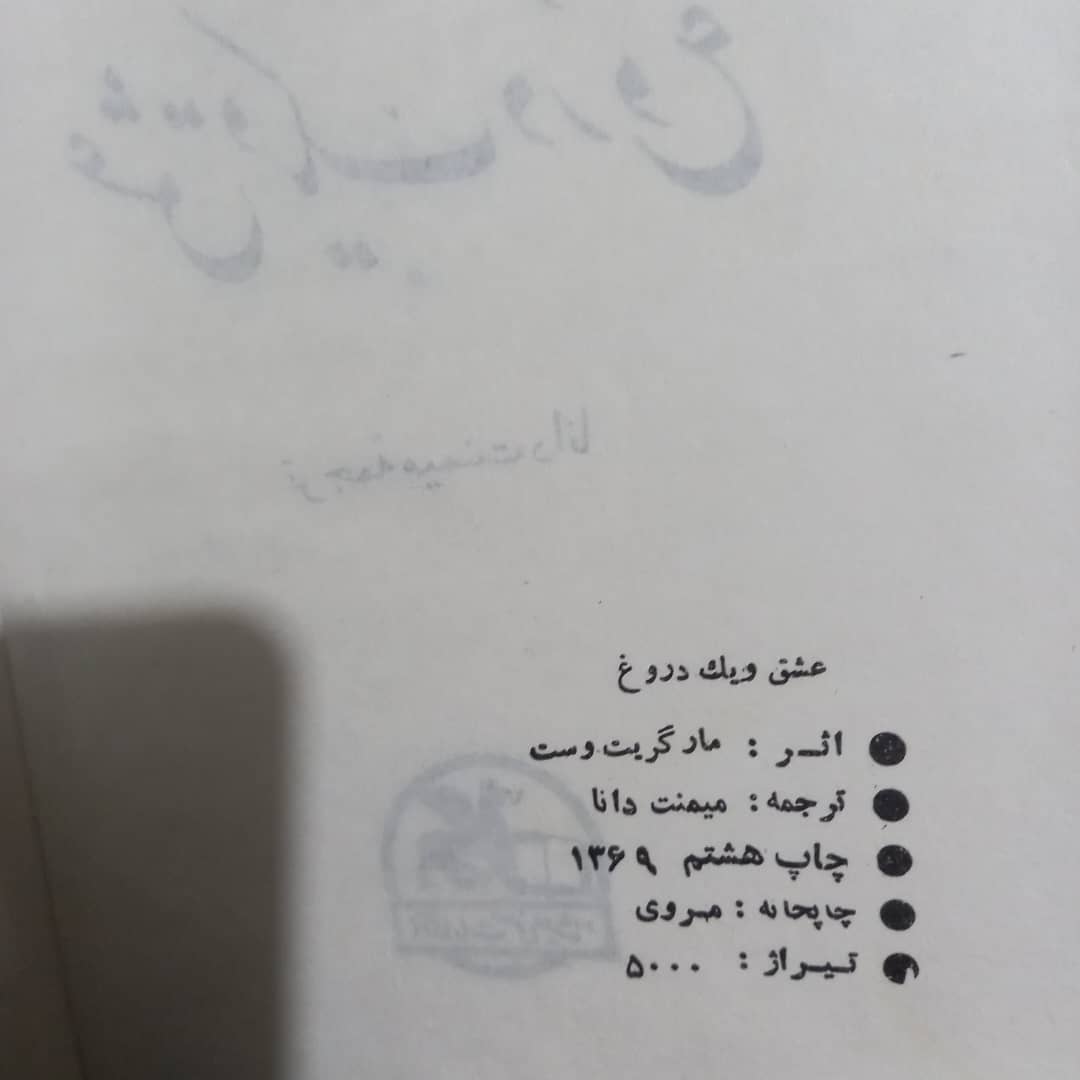 عشق ویك دروغ
اثـر : مارگریت وست
ترجمه: میمنت دانا
چاپ هشتم ۱۳۶۹
چاپخانه : مـروی
تـیـراژ : ۵۰۰۰
ترجمه میمنت دانا